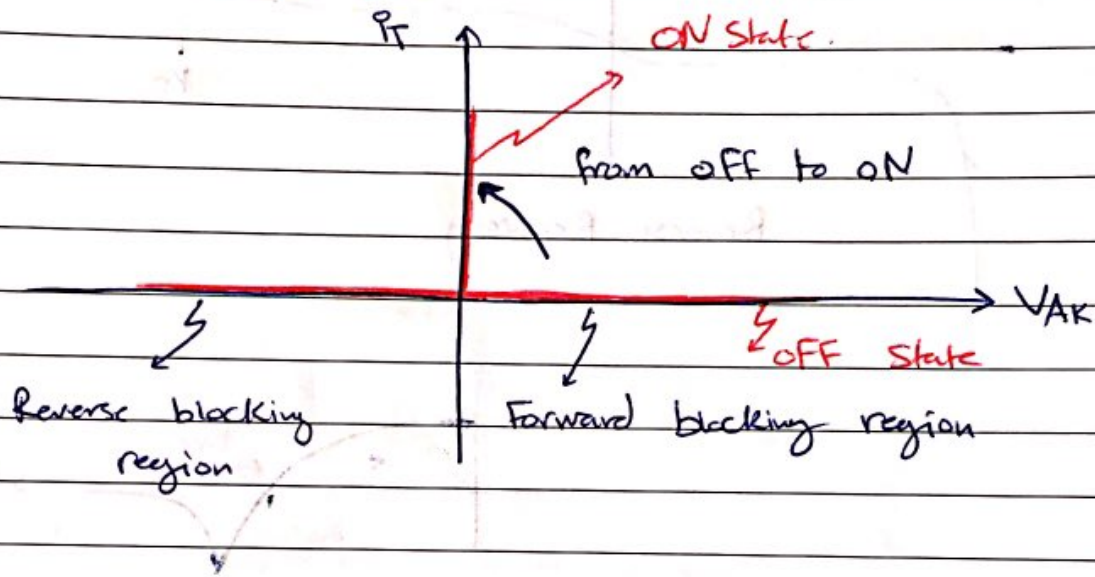 iT
ON State.
from OFF to ON
VAK
OFF State
Reverse blocking
region
Forward blocking region